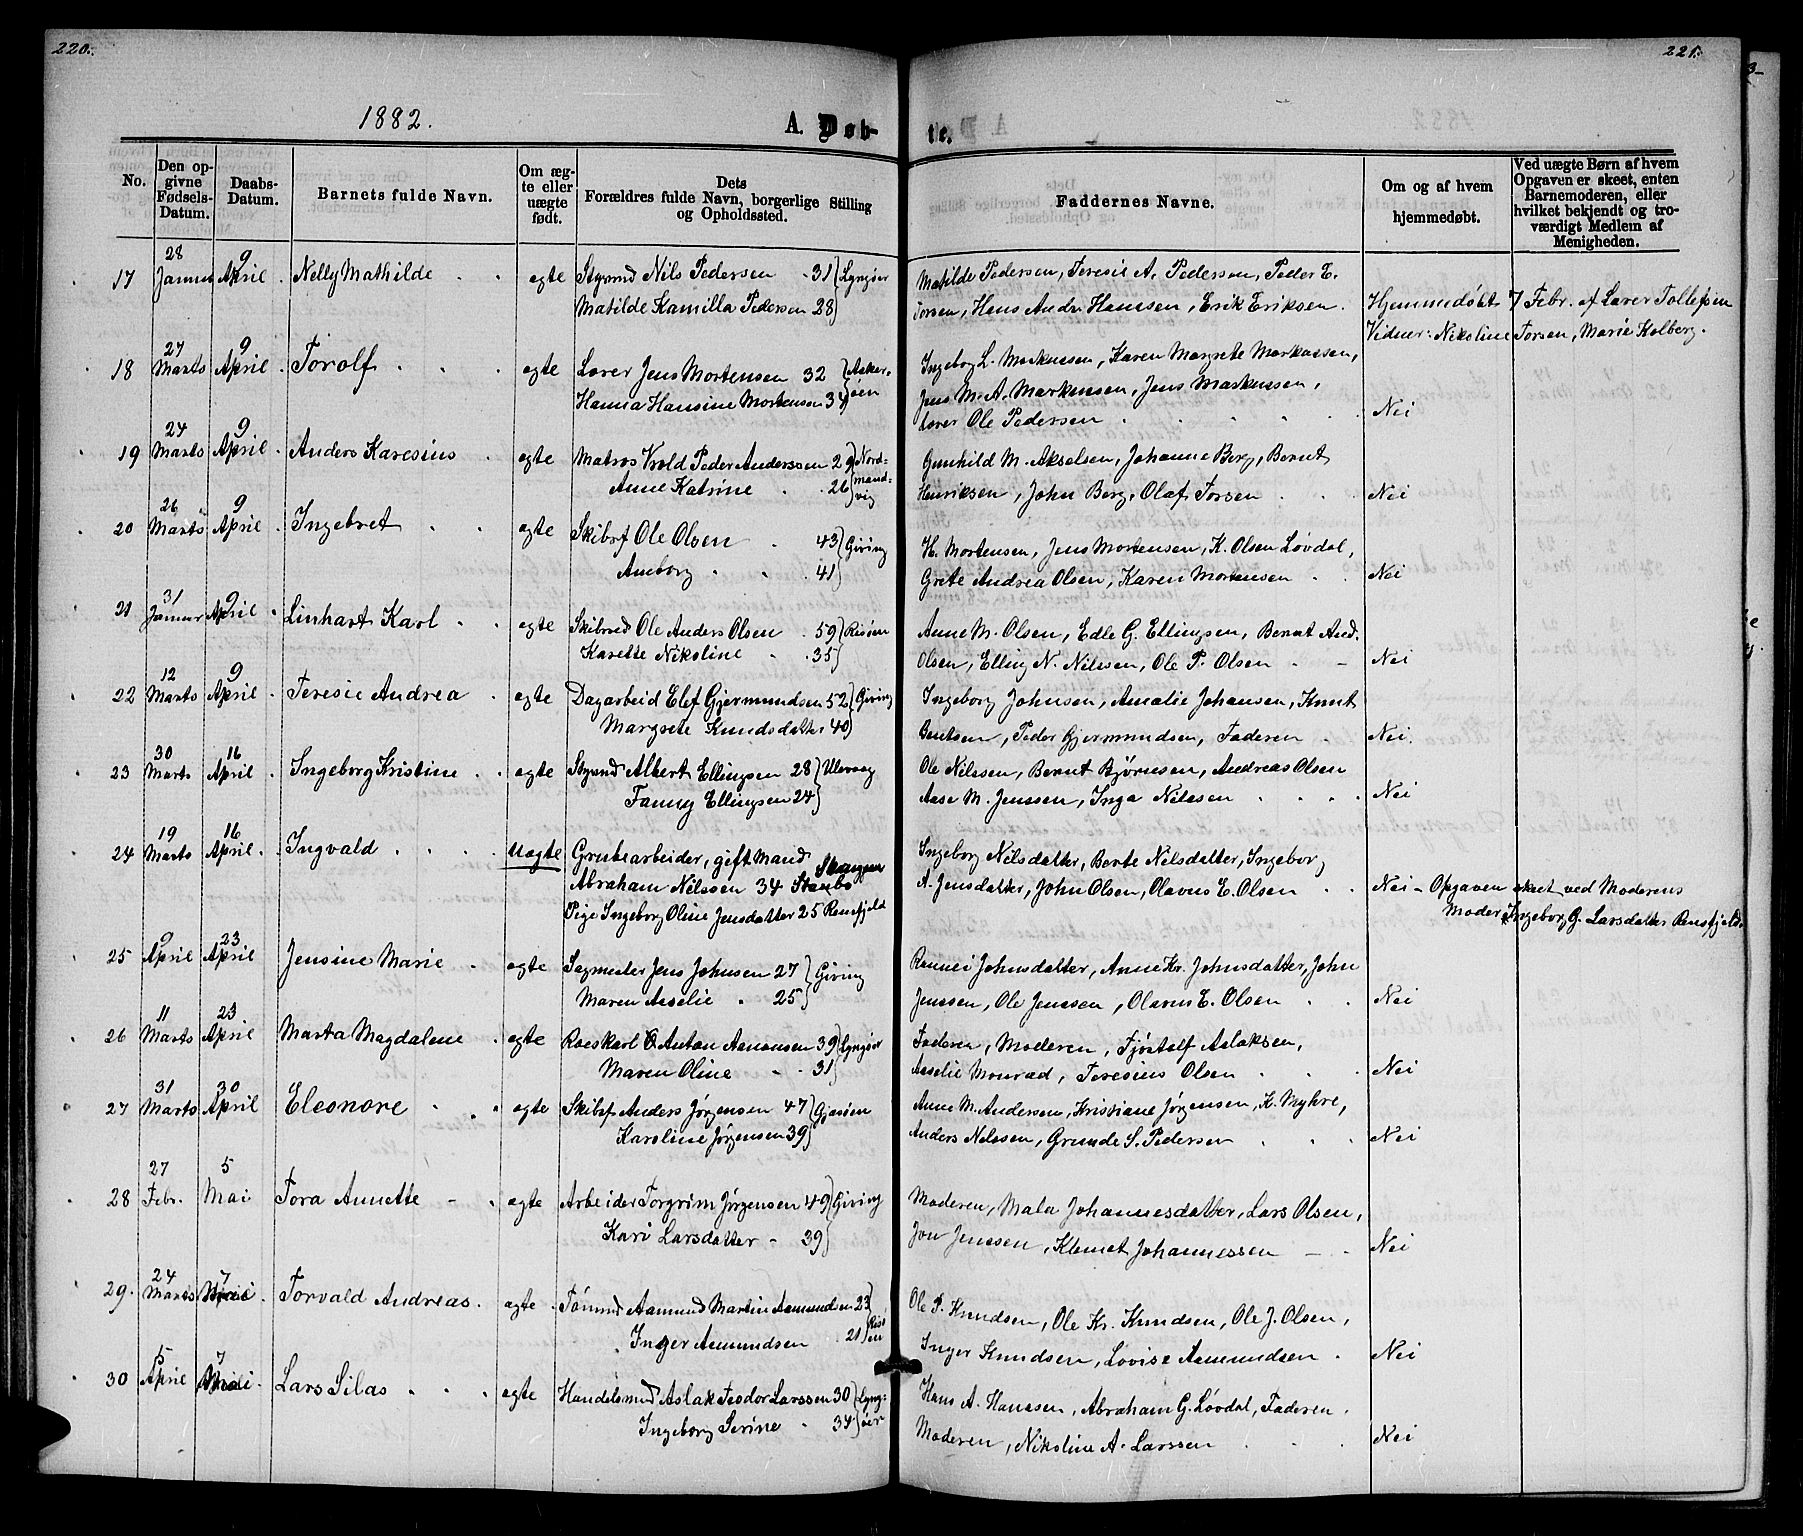 220.
221.
1882.
A. Døb-
te.
No.
Den opgivne Fødsels-Datum.
Daabs-Datum.
Barnets fulde Navn.
Om ægte eller uægte født.
Dets Forældres fulde Navn, borgerlige Stilling og Opholdssted.
Faddernes Navne.
Om og af hvem hjemmedøbt.
Ved uægte Børn af hvem Opgaven er skeet, enten Barnemoderen, eller hvilket bekjendt og troværdigt Medlem af Menigheden.
17 28 Januar 9 April Nelly Mathilde ægte Styrmd Nils Pedersen 31 Lyngør
Matilde Kamilla Pedersen 28
Matilde Pedersen, Teresie A. Pedersen, Peder E.
Torsen, Hans Andr. Hanssen, Erik Eriksen. Hjemmedøbt 7 Febr. af Lærer Tollefsen
Vidner: Nikoline Torsen, Marie Kolberg.
18 27 Marts 9 April Torolf ægte Lærer Jens Mortensen 32 Askerøen
Hanna Hansine Mortensen 34
Ingeborg L. Markussen, Karen Margrete Markussen,
Jens M. A. Markussen, Jens Markussen,
Lærer Ole Pedersen Nei
19 24 Marts 9 April Anders Karesius ægte Matros Vrold Peder Anderssen 29 Nordmandvig
Anne Katrine 26
Gunhild M. Akselsen, Johanne Berg, Bernt
Henriksen, John Berg, Olaf Torsen Nei
20 26 Marts 9 April Ingebret ægte Skibsf Ole Olsen 43 Giving
Amborg 41
H. Mortensen, Jens Mortensen, K. Olsen Løvdal,
Grete Andrea Olsen, Karen Mortensen Nei
21 31 Januar 9 April Linhart Karl ægte Skibsred Ole Anders Olsen 59 Risøen
Karette Nikoline 35
Anne M. Olsen, Edle G. Ellingsen, Bernt And.
Olsen, Elling N. Nilssen, Ole P. Olsen Nei
22 12 Marts 9 April Teresie Andrea ægte Dagarbeid Elef Gjermundsen 52 Giving
Margrete Knudsdatter 40
Ingeborg Johnsen, Amalie Johansen, Knut
Bentsen, Peder Gjermundsen, Faderen Nei.
23 30 Marts 16 April Ingeborg Kristine ægte Styrmd Albert Ellingsen 28 Ulevaag
Fanny Ellingsen 24
Ole Nilssen, Bernt Bjørnsen, Andreas Olsen
Aase M. Jenssen, Inga Nilssen Nei
24 19 Marts 16 April Ingvald Uægte Grubearbeider, gift Mand
Abraham Nilssen 34 Staubø
Pige Ingeborg Oline Jensdatter 25 Rensfjeld
Ingeborg Nilsdatter, Berte Nilsdatter, Ingeborg
A. Jensdatter, John Olsen, Olavus E. Olsen Nei - Opgaven skeet ved Moderens
Moder Ingeborg G. Larsdatter Rensfjeld.
25 9 April 23 April Jensine Marie ægte Sagmester Jens Johnsen 27 Giving
Maren Asselie 25
Rannei Johnsdatter, Anne Kr. Johnsdatter, John
Jenssen, Ole Jenssen, Olavus E. Olsen Nei
26 11 Marts 23 April Marta Magdalene ægte Roeskarl Anton Aanonsen 39 Lyngør
Maren Oline 31
Faderen, Moderen, Fjøstolf Aslaksen,
Asselie Monrad, Teresius Olsen Nei
27 31 Marts 30 April Eleonore ægte Skibsf Anders Jørgensen 47 Gjæsøen
Karoline Jørgensen 39
Anne M. Andersen, Kristiane Jørgensen, K. Myhre,
Anders Nilssen, Grunde S. Pedersen Nei
28 27 Febr. 5 Mai Tora Annette ægte Arbeider Torgrim Jørgensen 49 Giving
Kari Larsdatter 39
Moderen, Mala Johannesdatter, Lars Olsen,
Jon Jenssen, Klemet Johannessen Nei
29. 24 Marts 7 Mai Torvald Andreas. ægte Tømmd Aamund Martin Aamundsen 23 Risøen
Inger Aamundsen 21
Ole P. Knudsen, Ole Kr. Knudsen, Ole J. Olsen,
Inger Knudsen, Lovise Aamundsen Nei
30 5 April 7 Mai Lars Silas ægte Handelsmd Aslak Teodor Larssen 30 Lyngøer
Ingeborg Serine 34
Hans A. Hanssen, Abraham G. Løvdal, Faderen.
Moderen, Nikoline A. Larssen Nei